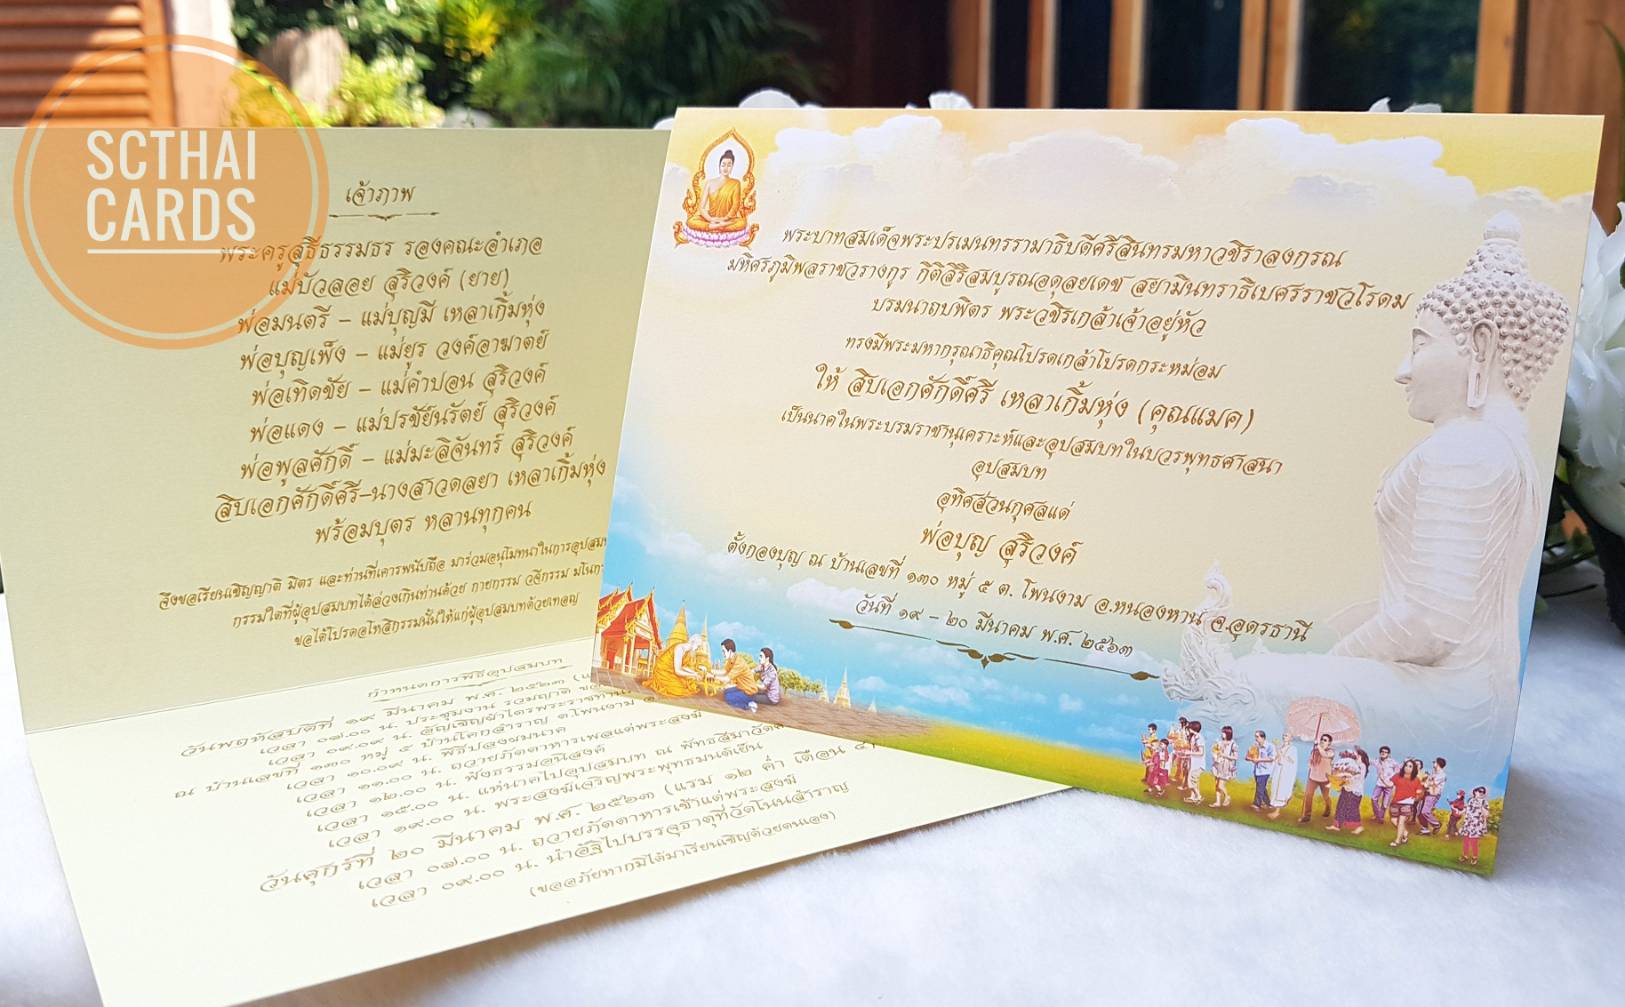 SCTHAI
CARDS
เจ้าภาพ
พระครูสุธีธรรมธร รองคณะอำเภอ
แม่บัวลอย สุริวงค์ (ยาย)
พ่อมนตรี – แม่บุญมี เหลาเกิ้มหุ่ง
พ่อบุญเพ็ง – แม่ยูร วงค์อาฆาตย์
พ่อเทิดชัย – แม่คำปอน สุริวงค์
พ่อแดง – แม่ปรชัย์นรัตย์ สุริวงค์
พ่อพูลศักดิ์ – แม่มะลิจันทร์ สุริวงค์
สิบเอกศักดิ์ศรี–นางสาวดลยา เหลาเกิ้มหุ่ง
พร้อมบุตร หลานทุกคน
จึงขอเรียนเชิญญาติ มิตร และท่านที่เคารพนับถือ มาร่วมอนุโมทนาในการอุปสม
กรรมใดที่ผู้อุปสมบทได้ล่วงเกินท่านด้วย กายกรรม วจีกรรม มโนก
ขอได้โปรดอโหสิกรรมนั้นให้แก่ผู้อุปสมบทด้วยเทอญ
กำหนดการพิธีอุปสมบท
วันพฤหัสบดีที่ ๑๙ มีนาคม พ.ศ. ๒๕๖๓
เวลา ๐๗.๐๐ น. ประชุมงาน รวมญาติ
เวลา ๐๙.๐๙ น. อัญเชิญผ้าไตรพระราชทาน
ณ บ้านเลขที่ ๑๓๐ หมู่ ๕ บ้านโคกสำราญ ต.โพนงาม
เวลา ๑๐.๐๙ น. พิธีปลงผมนาค
เวลา ๑๑.๐๐ น. ถวายภัตตาหารเพลแด่พระสงฆ์
เวลา ๑๒.๐๐ น. ฟังธรรมอนิสงค์
เวลา ๑๕.๐๐ น. แห่นาคไปอุปสมบท ณ พัทธสีมาวัด
เวลา ๑๙.๐๐ น. พระสงฆ์เจริญพระพุทธมนต์เย็น
วันศุกร์ที่ ๒๐ มีนาคม พ.ศ. ๒๕๖๓ (แรม ๑๒ ค่ำ เดือน ๔)
เวลา ๐๗.๐๐ น. ถวายภัตตาหารเช้าแด่พระสงฆ์
เวลา ๐๙.๐๐ น. นำอัฐิไปบรรจุธาตุที่วัดโนนสำราญ
(ขออภัยหากมิได้มาเรียนเชิญด้วยตนเอง)
พระบาทสมเด็จพระปรเมนทรรามาธิบดีศรีสินทรมหาวชิราลงกรณ
มหิศรภูมิพลราชวรางกูร กิติสิริสมบูรณอดุลยเดช สยามินทราธิเบศรราชวโรดม
บรมนาถบพิตร พระวชิรเกล้าเจ้าอยู่หัว
ทรงมีพระมหากรุณาธิคุณโปรดเกล้าโปรดกระหม่อม
ให้ สิบเอกศักดิ์ศรี เหลาเกิ้มหุ่ง (คุณแมค)
เป็นนาคในพระบรมราชานุเคราะห์และอุปสมบทในบวรพุทธศาสนา
อุปสมบท
อุทิศส่วนกุศลแด่
พ่อบุญ สุริวงค์
ตั้งกองบุญ ณ บ้านเลขที่ ๑๓๐ หมู่ ๕ ต. โพนงาม อ.หนองหาน จ.อุดรธานี
วันที่ ๑๙ – ๒๐ มีนาคม พ.ศ. ๒๕๖๓